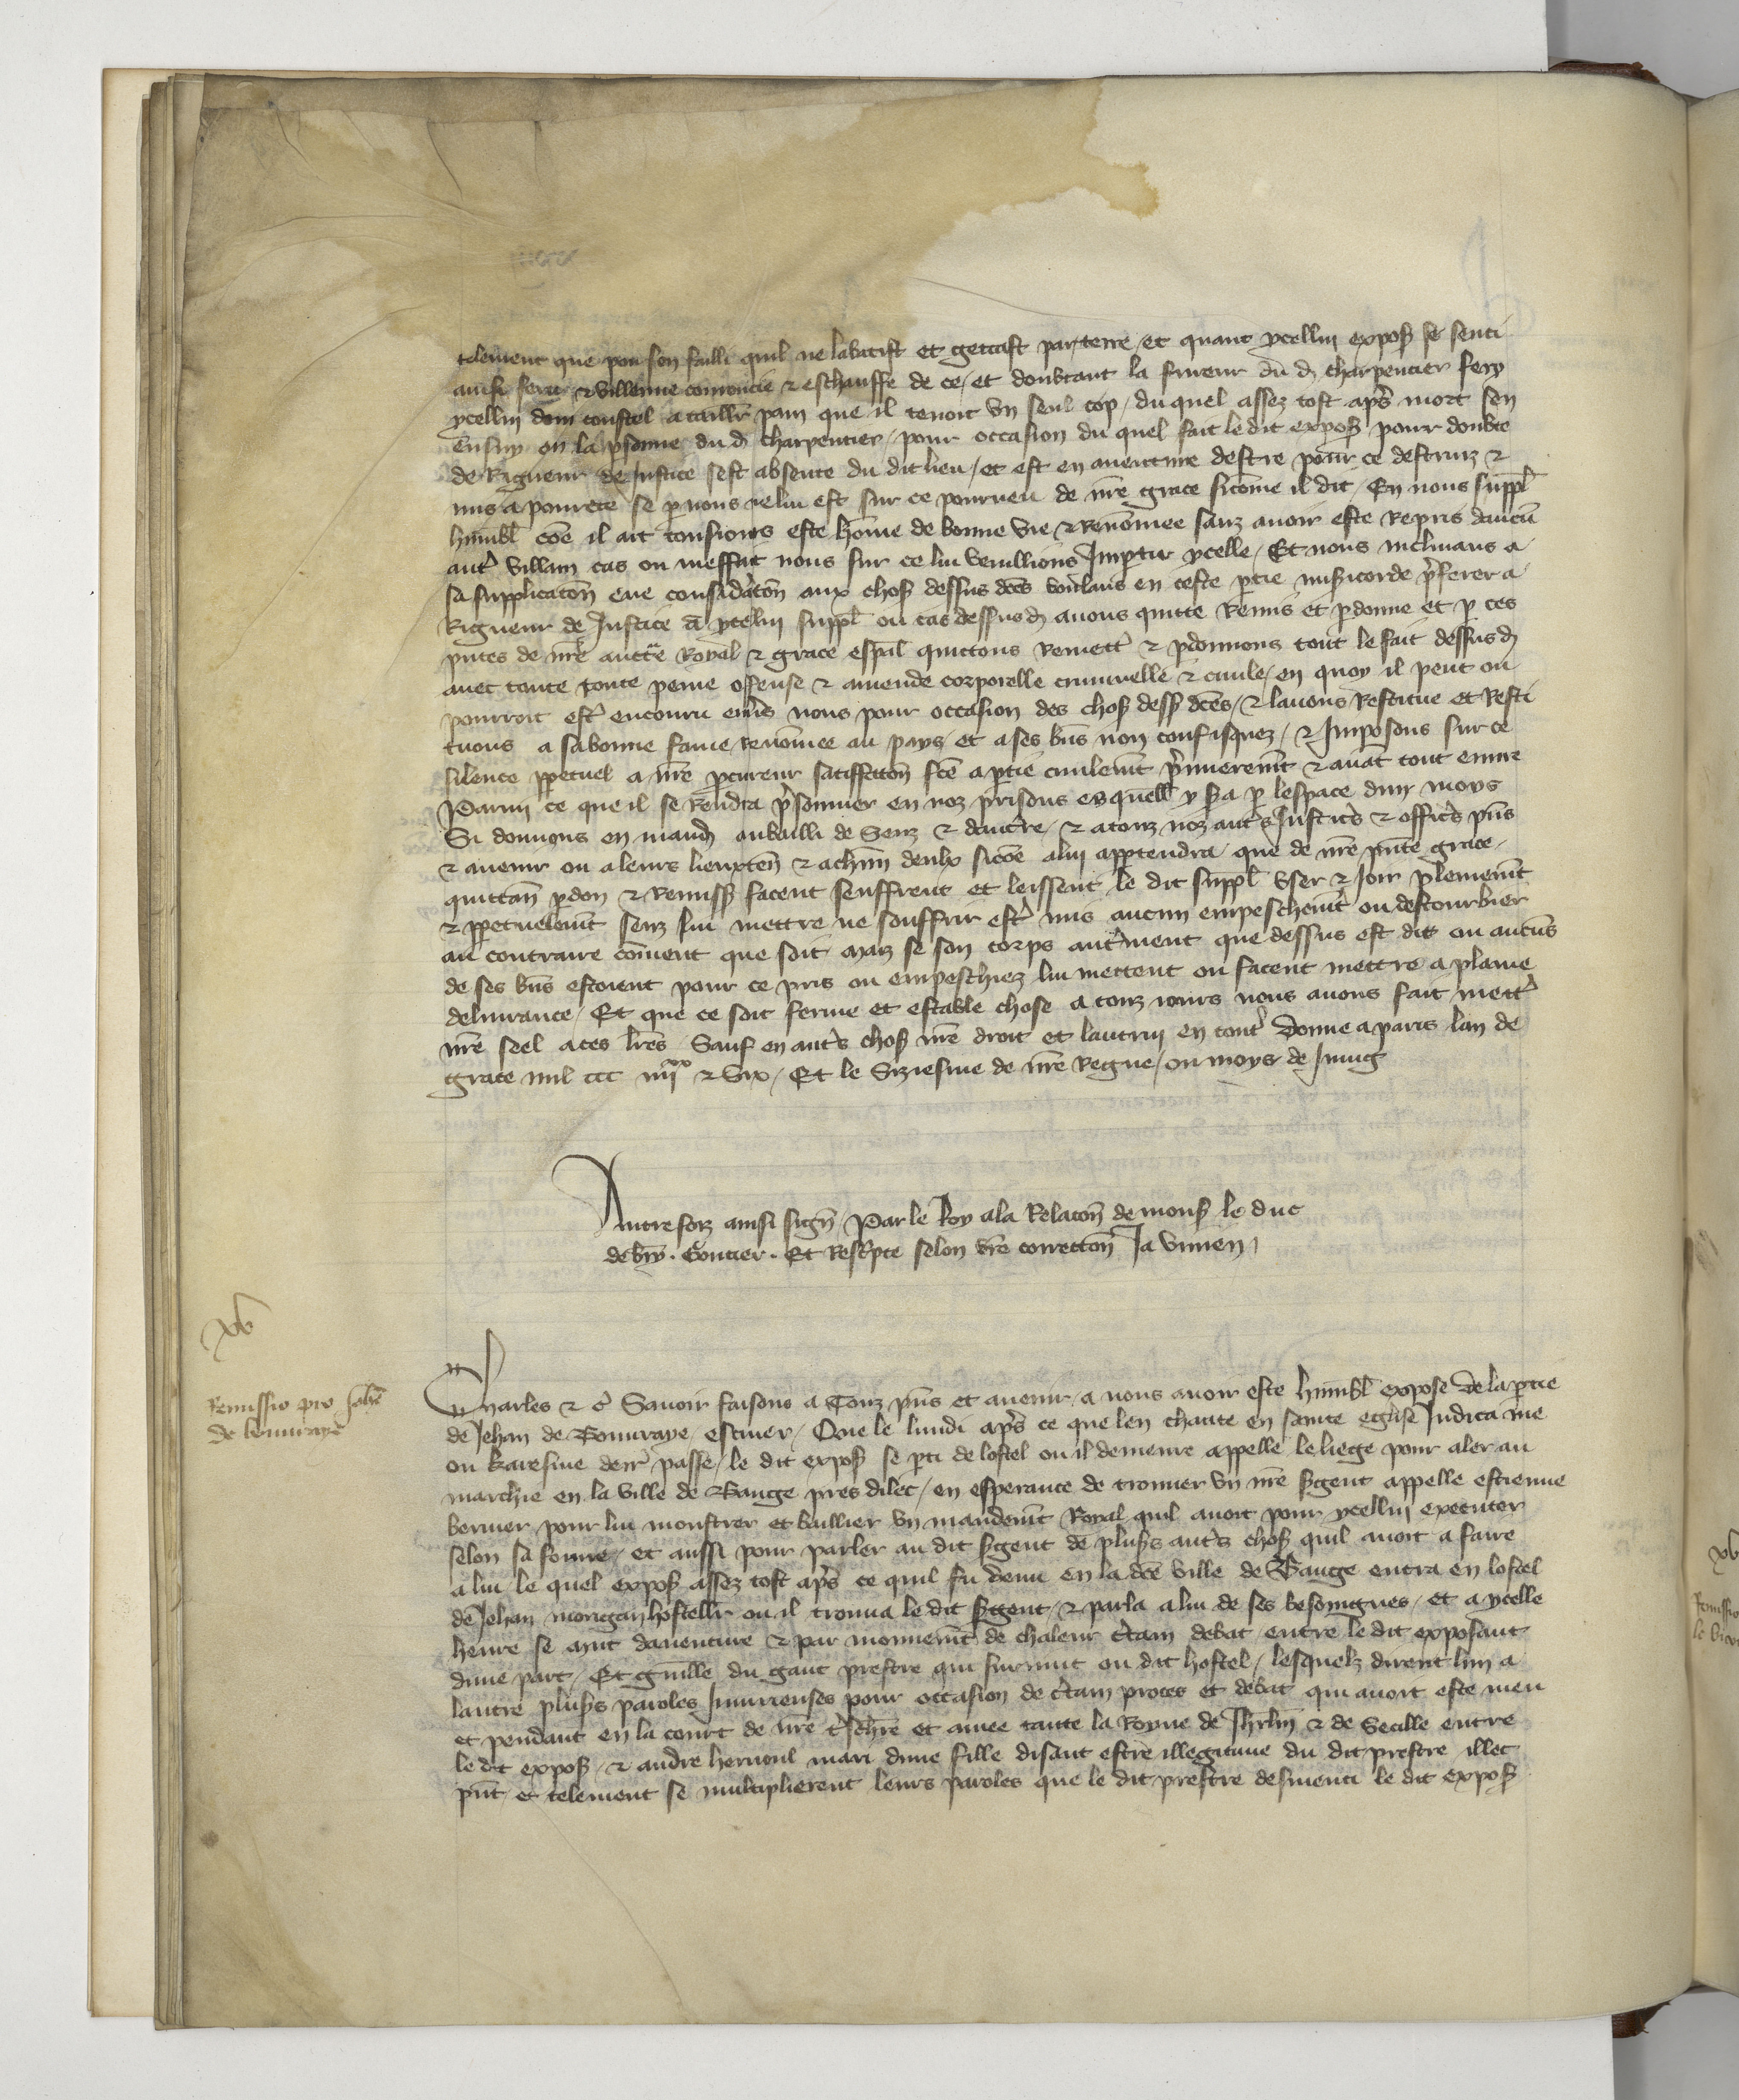 telement que pou sen failli quil ne labatist et gettast par terre et quant ycellui expos se senti
ainsi feru & villenne couroucie & eschauffe de ce et doubtant la fureur du d charpentier fery
ycellui dun coustel a taillr pain que il tenoit un seul cop du quel assez tost aps mort sen
ensuy en la psonne du d charpentier pour occasion du quel fait le dit expos pour doubte
de Rigueur de justice sest absente du dit lieu et est en aventure destre pour ce destruiz &
mis a pourete se p nous ne lui est sur ce pourveu de nre grace sicome il dit En nous suppl
humbl coe il ait tousiours este home de bonne vie & Renomee sanz avoir este Repris daucu
autr villain cas ou meffait nous sur ce lui veuillions Impartir ycelle Et nous inclinans a
sa supplicaton eue consideraton aux chos dessus dces voulans en ceste ptie misicorde preferer a
Rigueur de Justice a ycellui suppl ou cas dessus d avons quitte Remis et pdonne et p ces
pntes de nre auctte Royal & grace espal quittons remett & pdonnons tout le fait dessus d
avec toute toute peine offense & amende corporelle criminelle & civile en quoy il peut ou
pourroit estr encouru envs nous pour occasion des chos dess dces & lavons Restitue et Resti
tuons a sa bonne fame renomee au pays et a ses bns non confisquez & Imposons sur ce
silence ppetuel a nre pcureur satiffacton fce a ptie civilemt primierement & avat tout euvre
Parmi ce que il se Rendra prisonnier en noz prisons esquell y sa p lespace dun moys
Si donnons en mand au bailli de Senz & daucrre & a touz noz autrs Justics & offics pns
& avenir ou a leurs lieuxten & a chun deulx sicoe a lui appartendra que de nre pnte grace
quittan pdon & Remiss facent seuffrent et leissent le dit suppl user & Joir plenement
& ppetuelment sanz lui mettre ne souffrir estr mis aucun empeschemt ou destourbier
au contraire coment que soit maiz se son corps autrement que dessus est dit ou aucuns
de ses bns estoient pour ce pris ou empeschiez lui mettent ou facent mettre a plaine
delivrance Et que ce soit ferme et estable chose a touz iours nous avons fait mettr
nre seel a ces lres Sauf en autrs chos nre droit et lautrui en toutes Donne a paris lan de
grace mil ccc iiiixx & six Et le Siziesme de nre Regne ou moys de Juing
Autresfoiz ainsi sign Par le Roy a la Relacon de mons le duc
de bry. Gontier. Et Rescpte selon vre correcton Ja Vimen
xv
Remissio pro Johe
de bournaye
Charles & c Savoir faisons a Touz pns et avenir a nous avoir este humbl expose de la ptie
de Jehan de Bournaye escuier Que le lundi aps ce que len chante en sainte eglise Judica me
ou karesme derr passe le dit expos se pti de lostel ou il demeure appelle le liege pour aler au
marchie en la ville de Bauge pres dilec en esperance de trouver un nre sgent appelle estienne
bernier pour lui monstrer et baillier un mandemt Royal quil avoit pour ycellui executer
selon sa forme et aussi pour parler au dit sgent de plusrs autrs chos quil avoit a faire
a lui le quel expos assez tost aps ce quil fu venu en la dce ville de Bauge entra en lostel
de Jehan morigan hostellr ou il trouva le dit sgent & parla a lui de ses besoingnes et a ycelle
heure se mut daventure & par mouvemt de chaleur ctain debat entre le dit exposant
dune part Et Guille du gaut prestre qui survint ou dit hostel lesquelz dirent lun a
lautre plusrs paroles Iniurieuses pour occasion de ctain proces et debat qui avoit este meu
et pendant en la court de nre tschre et amee tante la Royne de Jhrlm & de Secille entre
le dit expos & andre hernoul mari dune fille disant estre illegitime du dit prestre illec
pnt et telement se multiplierent leurs paroles que le dit prestre desmenti le dit expos